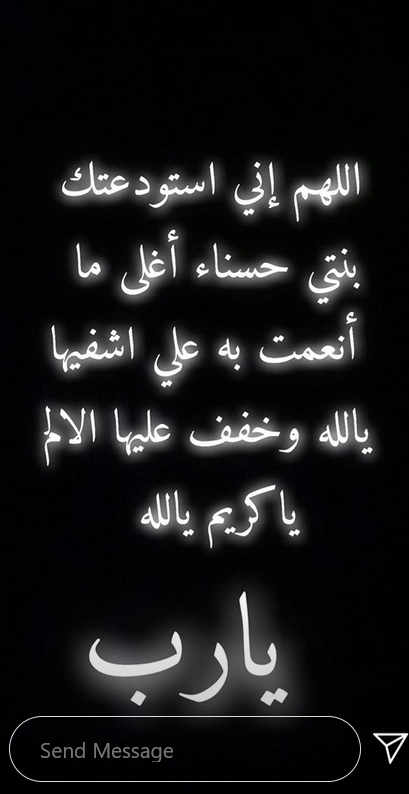 اللهم إني استودعتك
بنتي حسناء أغلى ما
أنعمت به علي اشفيها
يالله وخفف عليها الالم
ياكريم يالله
يارب
Send Message